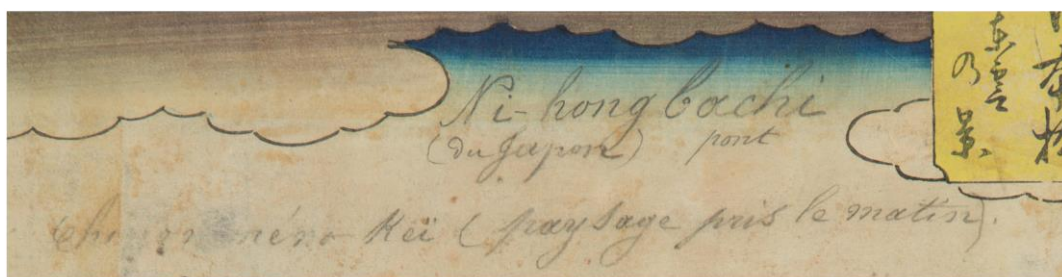 Ni-hong bachi
(du Japon) pont
néno Keï (paysage pris le matin).
日本橋
東雲
の景